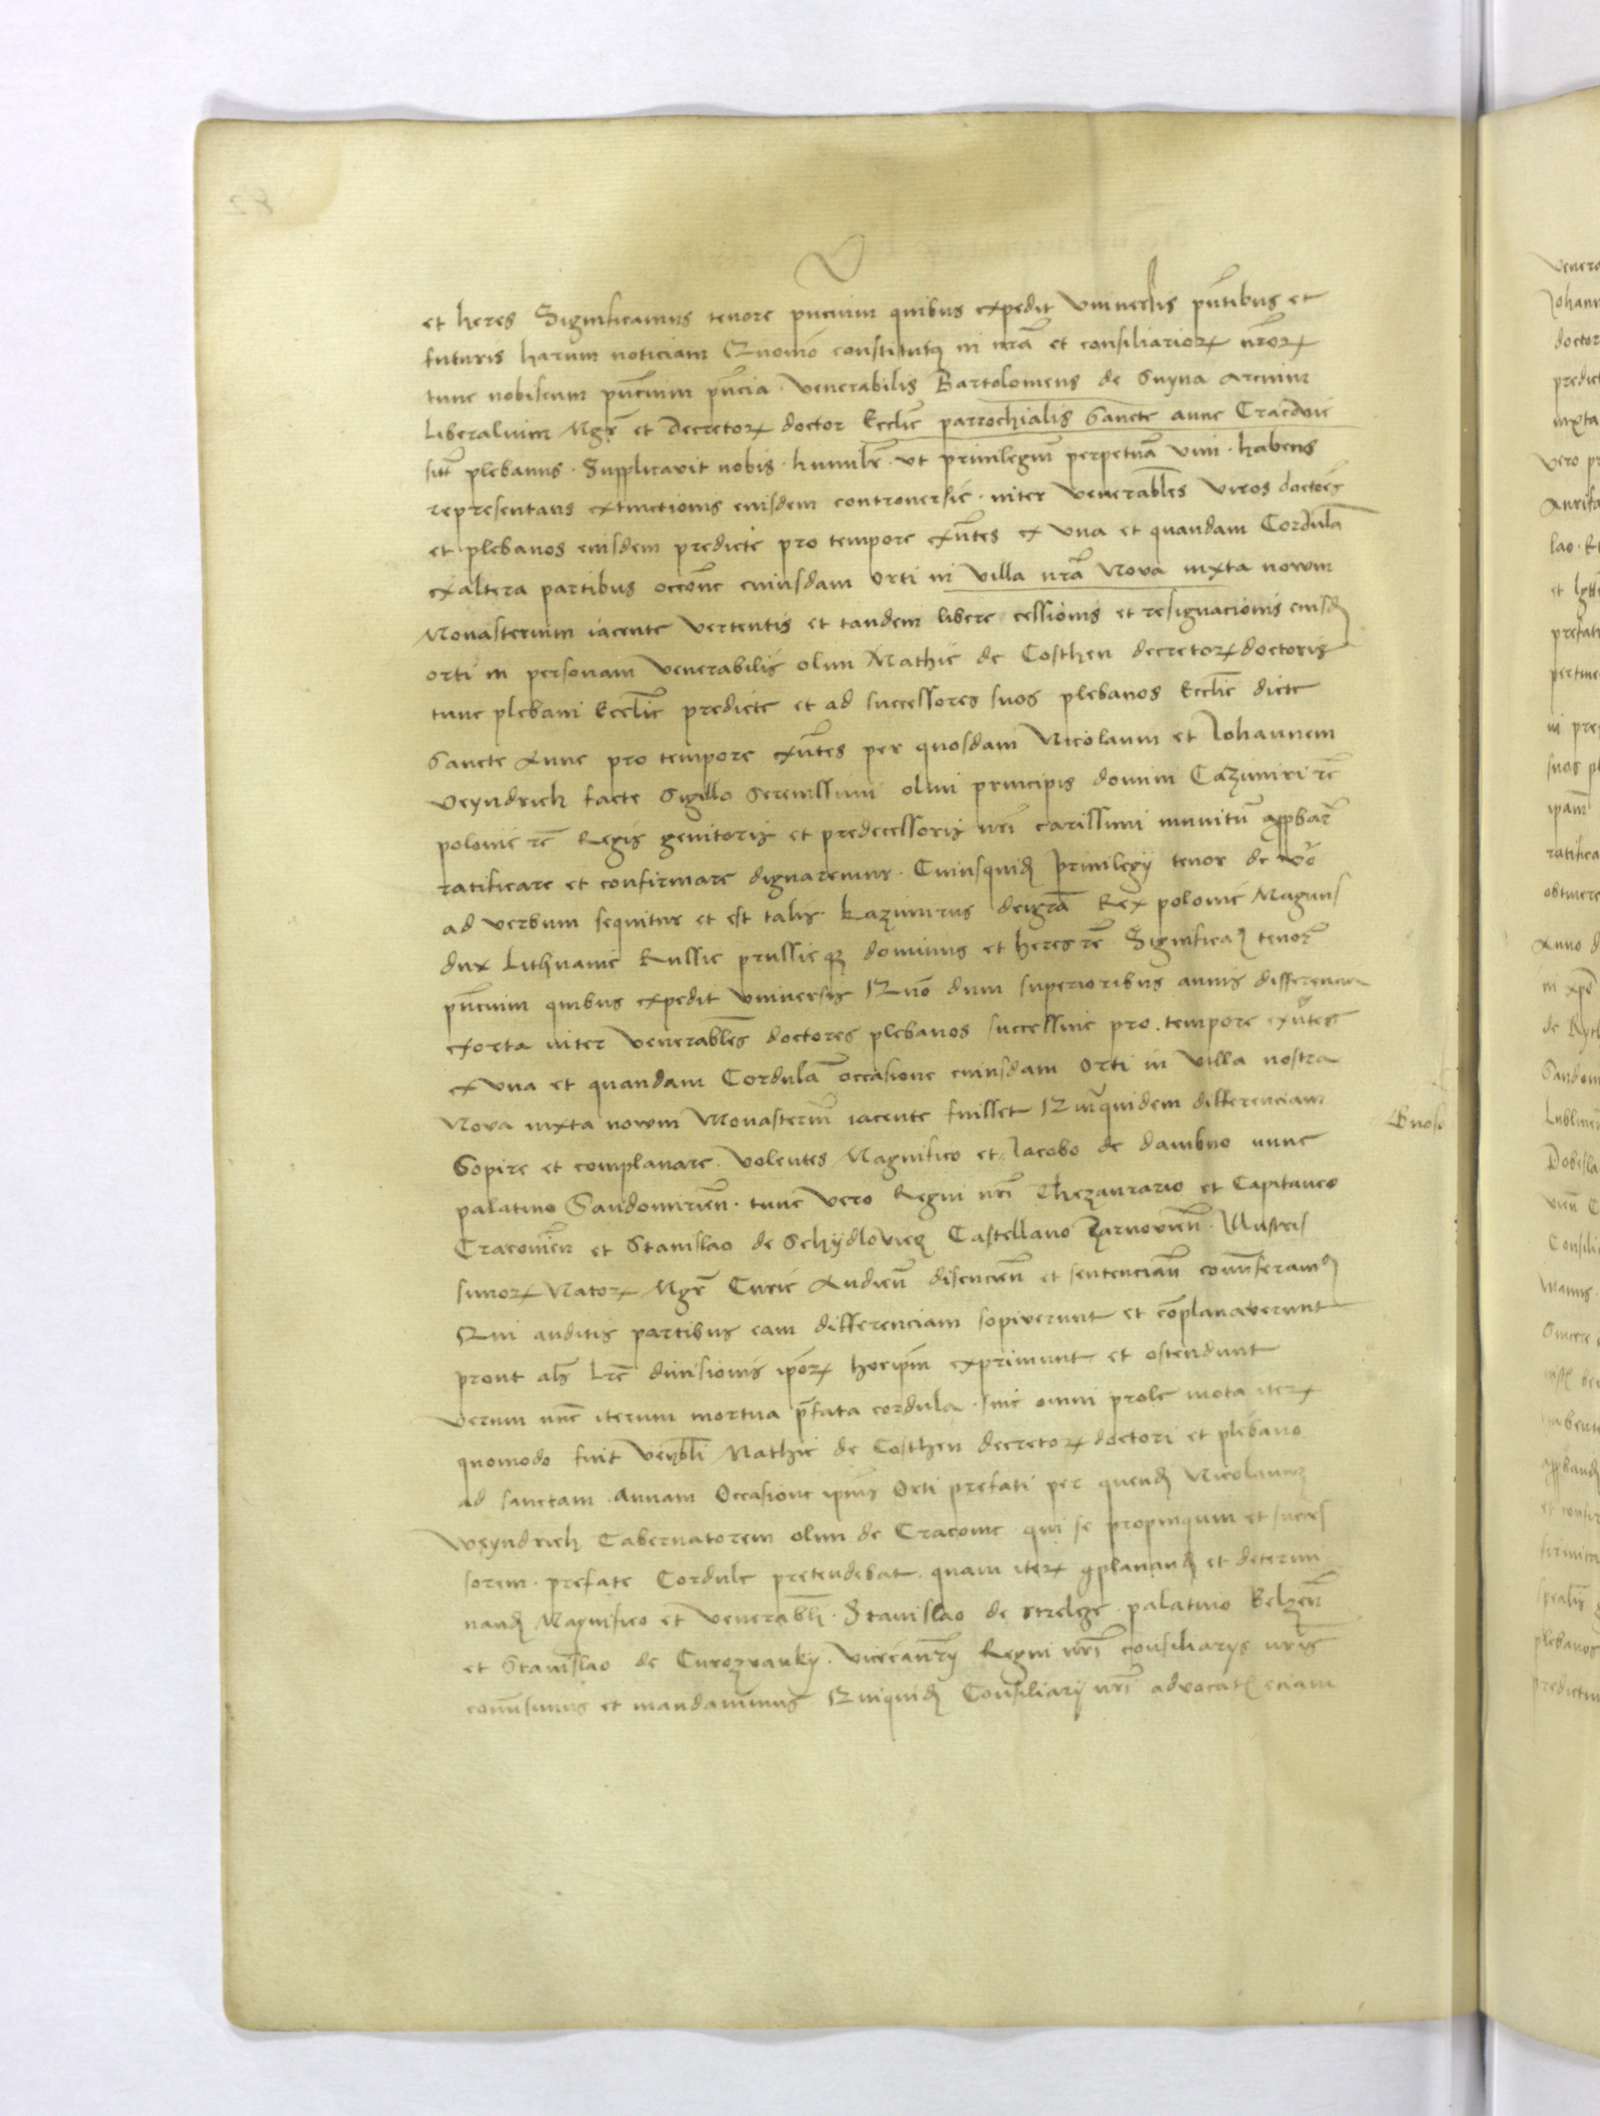 et heres Significamus tenore pncium quibus expedit Universis pntibus et
futuris harum noticiam Quomo constitutus in nra et consiliariorꝝ nrorꝝ
tunc nobiscum pncium pncia · Venerabilis Bartolomeus de Snyna Arcium
Liberalium Mgr et Decretorꝝ doctor Ecclie parrochialis Sancte anne Cracovie
sitt plebanus · Supplicavit nobis · humilr · ut privilegium perpetuam vim · habens
representans extinctionis eiusdem controversie · inter Venerabiles Viros doctores
et plebanos eiusdem predicte pro tempore exntes ex Una et quandam Cordulam
ex altera partibus occone cuiusdam Orti in Villa nra Nova iuxta nowm
Monasterium iacente Vertentis et tandem libere cessionis et resignacionis eiusd
orti in personam Venerabilis olim Mathie de Costhen decretorꝝ doctoris
tunc plebani Ecclie predicte et ad successores suos plebanos Ecclie dicte
Sancte Anne pro tempore exntes per quosdam Nicolaum et Johannem
Veyndrich facte Sigillo Serenissimi olim principis domini Cazimiri re
polonie re Regis genitoris et predecessoris nri carissimi munitum appbar
ratificare et confirmare dignaremur · Cuiusquid Privilegij tenor de vbo
ad verbum sequitur et est talis · Kazimirus dei gra Rex polonie Magnus
dux Lithuanie Russie prussieqꝫ dominus et heres re Significam tenor
pncium quibus expedit Universis Quo dum superioribus annis differencia
exorta inter Venerabiles doctores plebanos successive pro tempore exntes
ex Una et quandam Cordulam occasione cuiusdam Orti in Villa nostra
Nova iuxta nowm Monasterium iacente fuisset Quaquidem differenciam
Sopire et complanare · Volentes Magnifico et Jacobo de dambno nunc
palatino Sandomirien · tunc Vero Regni nri Thezaurario et Capitaneo
Cracovien et Stanislao de Schydlovyecz Castellano Zarnovien · Illustris
simorꝝ Natorꝝ Mgr Curie Audien discucien et sentencian commiseram
Qui auditis partibus eam differenciam sopiverunt et complanaverunt
prout als Lre divisionis iporꝝ hocipm exprimunt et ostendunt
Verum nunc iterum mortua pfata cordula · sine omni prole mota iterꝝ
quomodo fuit Venbli Mathie de Costhen decretorꝝ doctori et plebano
ad sanctam · Annam Occasione ipius Orti prefati per quend Nicolaum
Weyndrich Tabernatorem olim de Cracovie qui se propinquum et succes
sorem · prefate Cordule pretendebat · quam iterꝝ cplanand et determi
nand Magnifico et Venerabli · Stanislao de Strelcze · palatino Belzen
et Stanislao de Curozvanky · Vicecanry Regni nri consiliarys nris
comisimus et mandavimus Quiquid Consiliarij nri advocat eciam